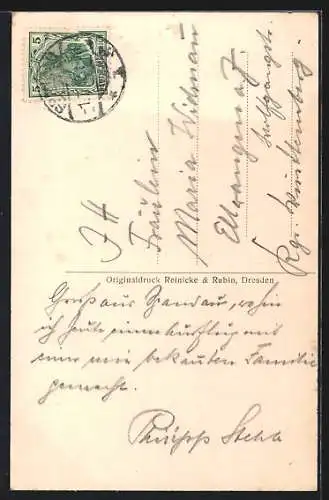 5 5
IH
Fräulein
Maria Widman
Ellwangen a/J.
Kgr. Württemberg.
Originaldruck Reinicke & Rubin, Dresden
Gruß aus Schandau, wohin
ich heute einen Ausflug mit
einer mir bekannten Familie
gemacht.
Philipp